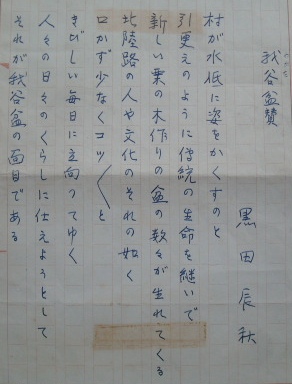 我谷盆賛
黒田辰秋
村が水底に姿をかくすのと
引更えのように傳統の生命を継いで
新しい栗の木作りの盆の数々が生れてくる
北陸路の人や文化のそれの如く
口かず少なくコツ〱と
きびしい毎日に立向ってゆく
人々の日々のくらしに仕えようとして
それが我谷盆の面目である